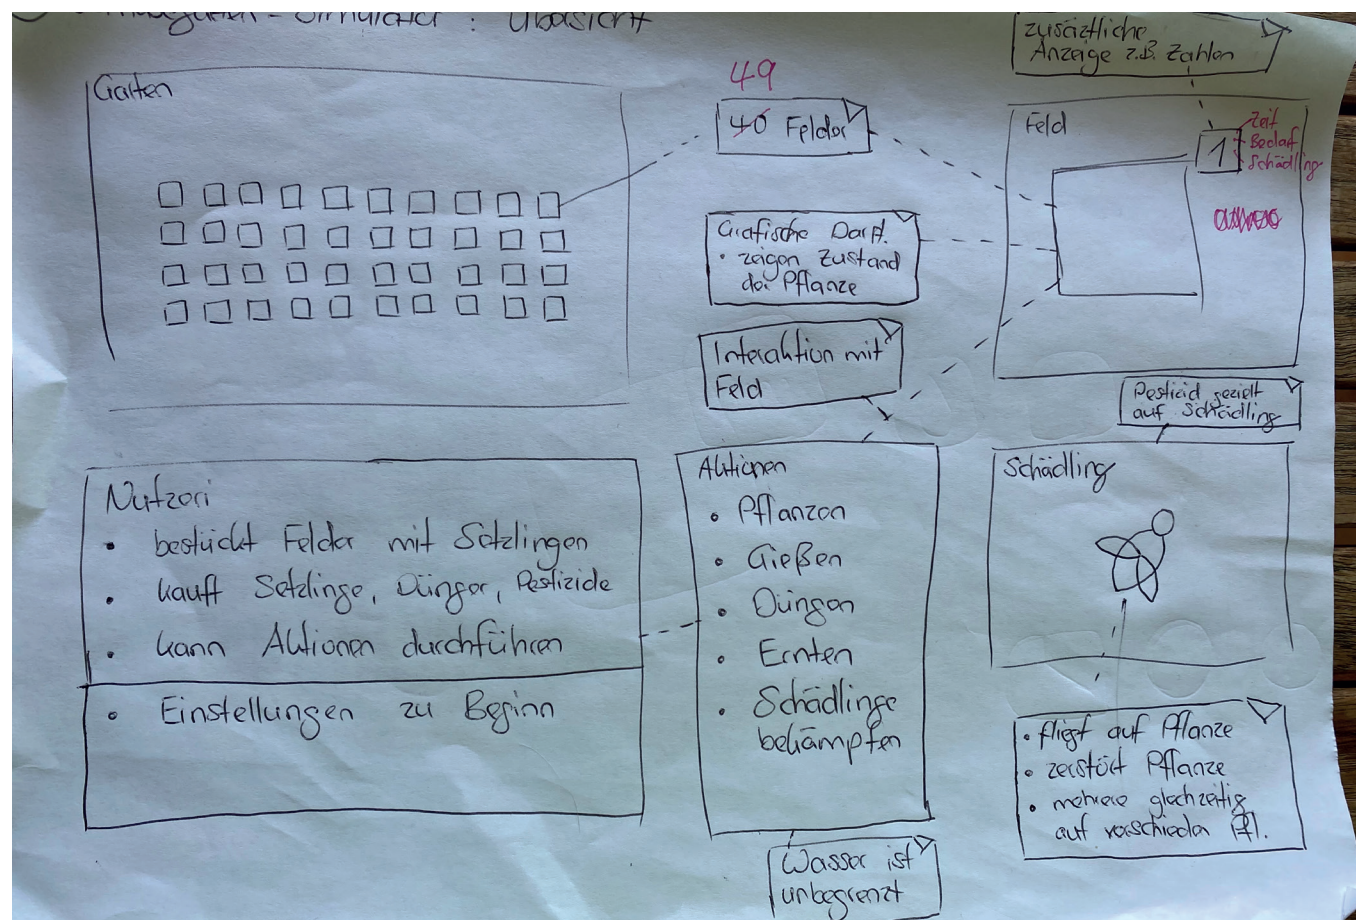 - Simulator : Übersicht
zusäztliche
Anzeige z.B. Zahlen
Garten
49
40 Felder
Feld
1
Zeit
Bedarf
Schädling
Grafische Darst.
• zeigen Zustand
der Pflanze
Interaktion mit
Feld
Pestizid gezielt
auf Schädling
Nutzeri
• bestückt Felder mit Setzlingen
• kauft Setzlinge, Dünger, Pestizide
• kann Aktionen durchführen
• Einstellungen zu Beginn
Aktionen
• Pflanzen
• Gießen
• Düngen
• Ernten
• Schädlinge
bekämpfen
Wasser ist
unbegrenzt
Schädling
• fliegt auf Pflanze
• zerstört Pflanze
• mehrere gleichzeitig
auf verschieden Pf.